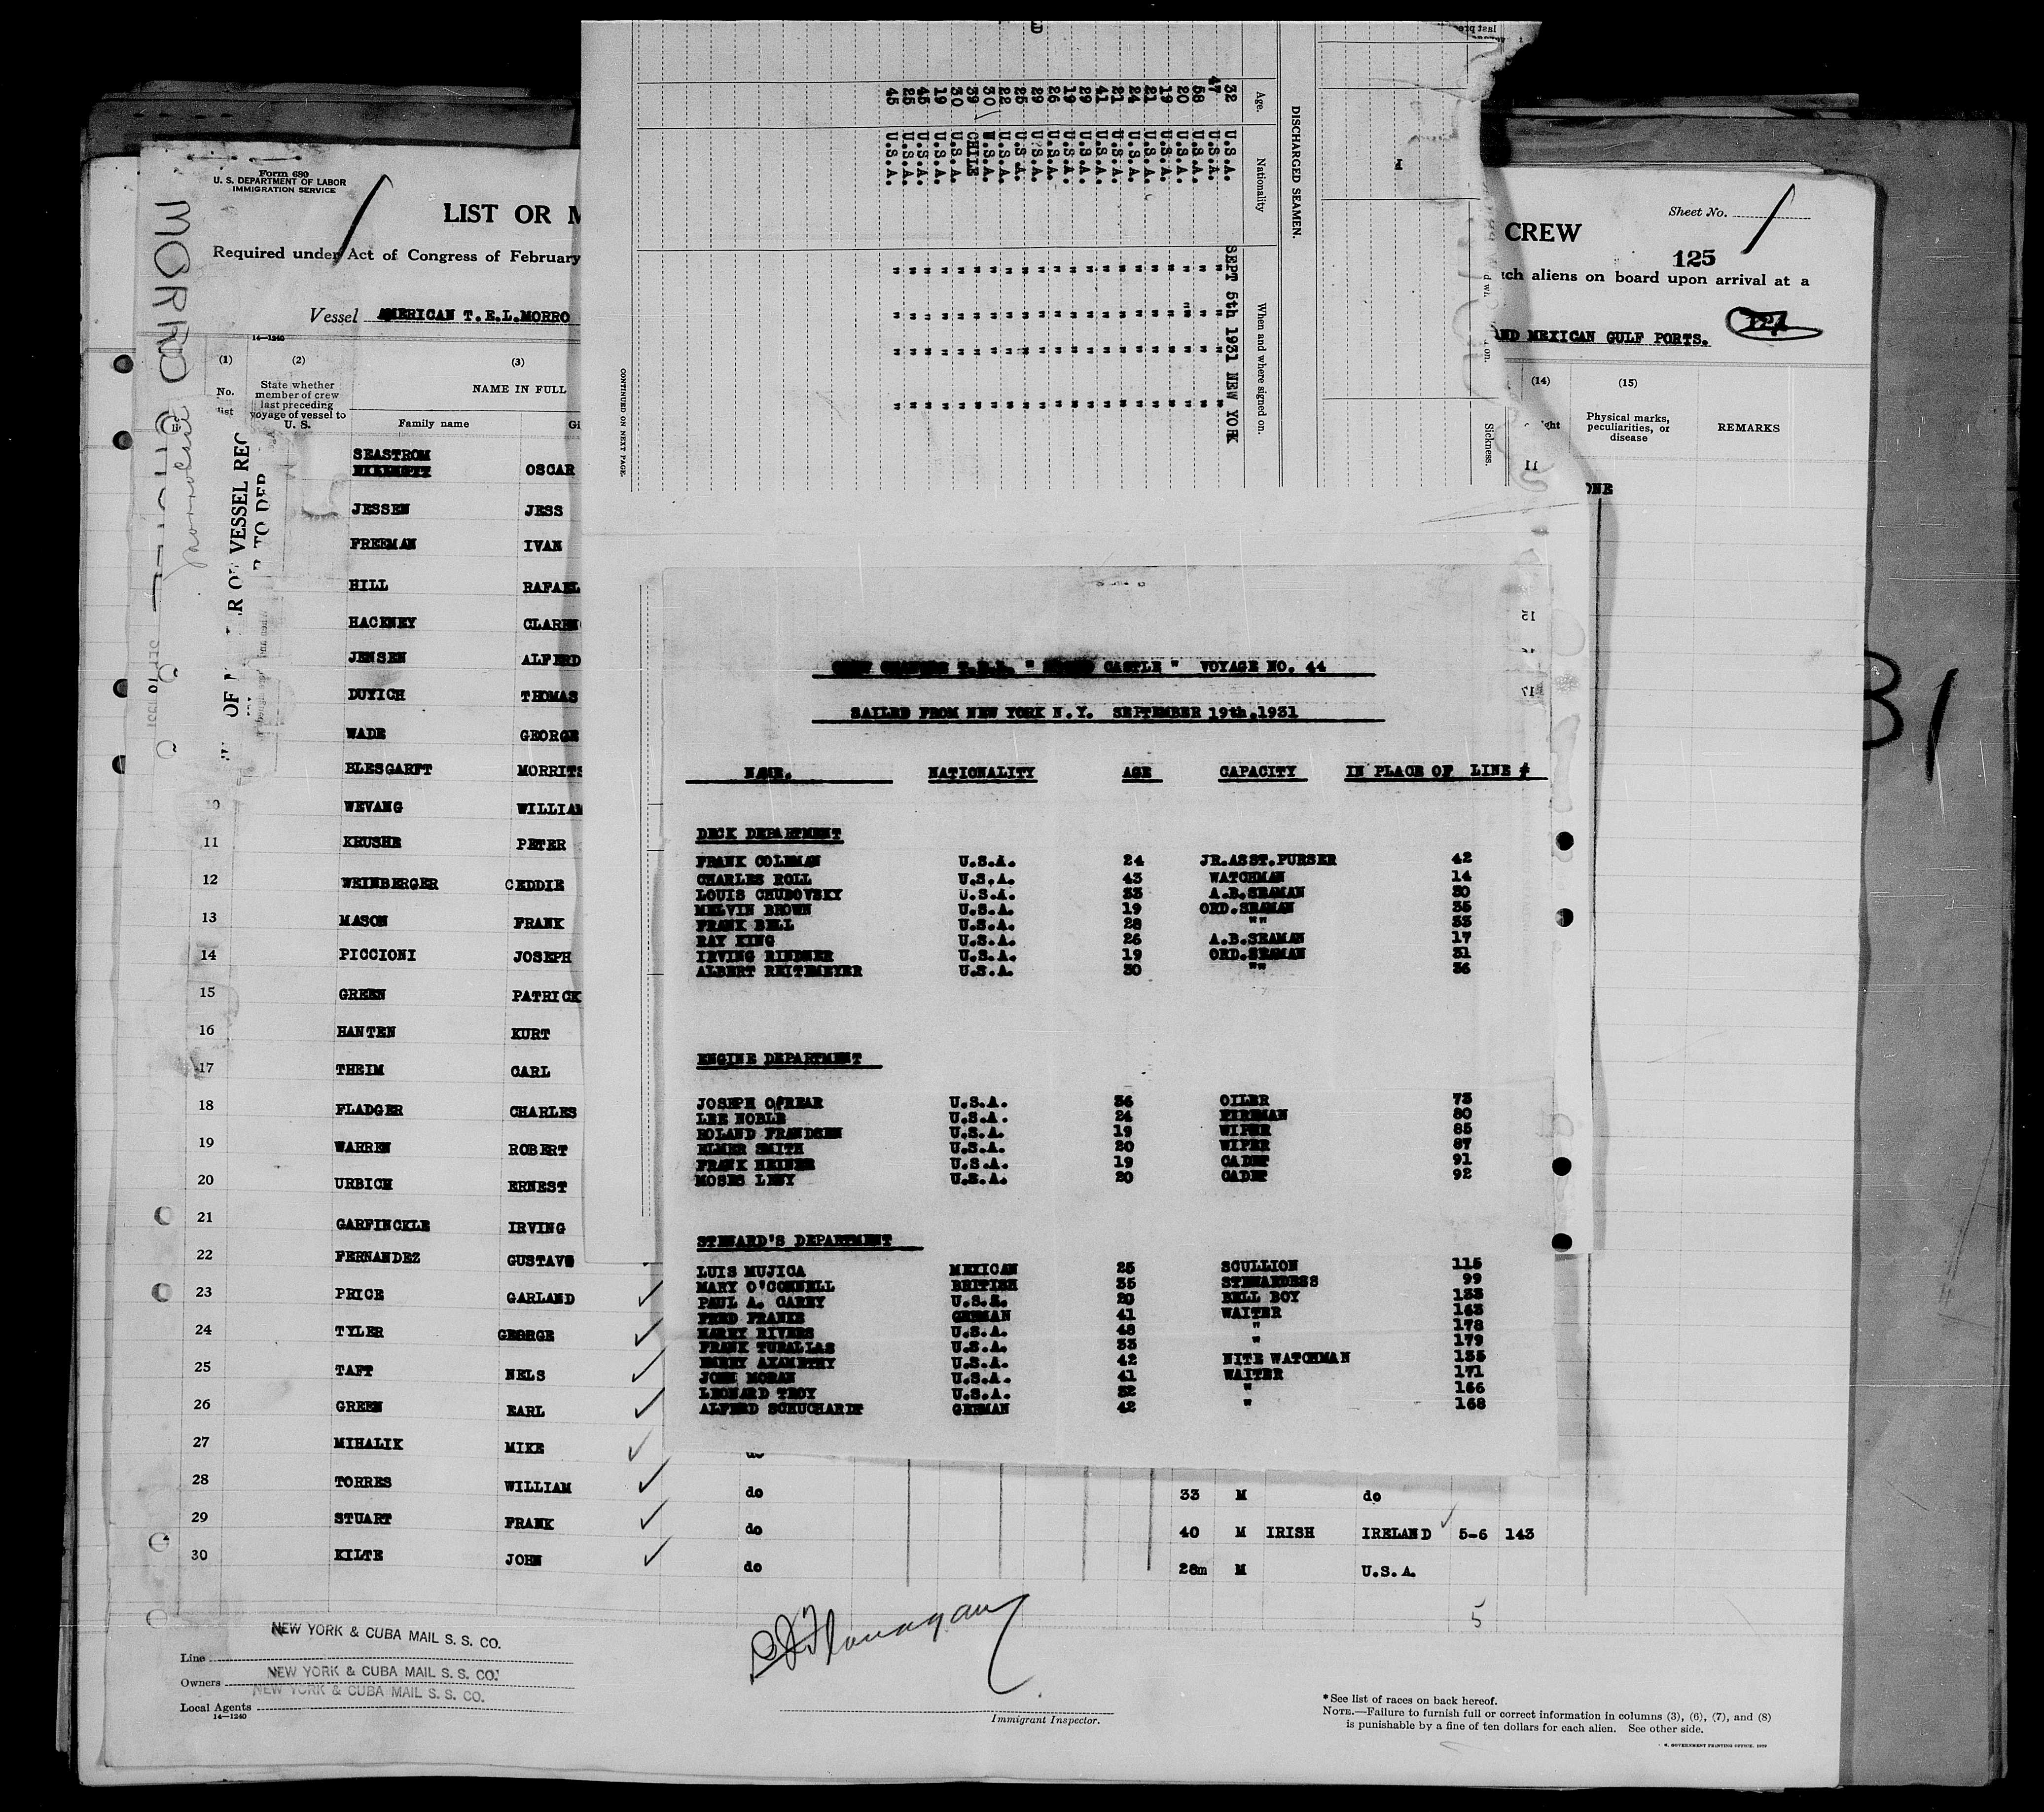 Form 680
U. S. DEPARTMENT OF LABOR
IMMIGRATION SERVICE
LIST OR M
Required under Act of Congress of February
Vessel AMERICAN T.E.L.MORRO
14—1240
(1) (2) (3)
No. list
State whether member of crew last preceding voyage of vessel to U. S.
NAME IN FULL
Family name Gi
SEASTROM
OSCAR
JESSEN JESS
FREEMAN IVAN
HILL RAFAEL
HACKNEY CLAREN
JENSEN ALFERD
DUYICH THOMAS
WADE GEORGE
BLESGARFT MORRITS
WEVANG WILLIAM
11 KRUSHE PETER
12 WEINBERGER CEDDIE
13 MASON FRANK
14 PICCIONI JOSEPH
15 GREEN PATRICK
16 HANTEN KURT
17 THEIM CARL
18 FLADGER CHARLES
19 WARREN ROBERT
20 URBICH ERNEST
21 GARFINCKLE IRVING
22 FERNANDEZ GUSTAVO
23 PRICE GARLAND
24 TYLER GEORGE
25 TAFT NELS
26 GREEN EARL
27 MIHALIK MIKE
28 TORRES WILLIAM do 33 M do
29 STUART FRANK do 40 M IRISH IRELAND 5-6 143
30 KILTE JOHN do 28m M U.S.A.
5
NEW YORK & CUBA MAIL S. S. CO.
Line
NEW YORK & CUBA MAIL S. S. CO.
Owners
NEW YORK & CUBA MAIL S. S. CO.
Local Agents
14—1240
Flanagan
Immigrant Inspector.
*See list of races on back hereof.
NOTE.—Failure to furnish full or correct information in columns (3), (6), (7), and (8)
is punishable by a fine of ten dollars for each alien. See other side.
GOVERNMENT PRINTING OFFICE. 1929
MORRO
VESSEL REC
TO DEP
Sheet No. 1
CREW
125
ch aliens on board upon arrival at a
AND MEXICAN GULF PORTS.
(14) (15)
Physical marks, peculiarities, or disease
REMARKS
11
ONE
31
DISCHARGED SEAMEN.
Age. Nationality When and where signed on.
Sickness.
32 U.S.A. SEPT 5th 1931 NEW YORK
47 U.S.A. " " " "
58 U.S.A. " " " "
20 U.S.A. " " " "
19 U.S.A. " " " "
21 U.S.A. " " " "
24 U.S.A. " " " "
21 U.S.A. " " " "
41 U.S.A. " " " "
29 U.S.A. " " " "
19 U.S.A. " " " "
26 U.S.A. " " " "
29 U.S.A. " " " "
25 U.S.A. " " " "
22 U.S.A. " " " "
30 U.S.A. " " " "
39 CHILE " " " "
30 U.S.A. " " " "
19 U.S.A. " " " "
45 U.S.A. " " " "
25 U.S.A. " " " "
45 U.S.A. " " " "
CONTINUED ON NEXT PAGE.
CREW CHANGES T.E.L. " MORRO CASTLE " VOYAGE NO. 44
SAILED FROM NEW YORK N.Y. SEPTEMBER 19th.1931
NAME. NATIONALITY AGE CAPACITY IN PLACE OF LINE #
DECK DEPARTMENT
FRANK COLEMAN U.S.A. 24 JR.ASST.PURSER 42
CHARLES ROLL U.S.A. 43 WATCHMAN 14
LOUIS CHUBOVSKY U.S.A. 33 A.B.SEAMAN 20
MELVIN BROWN U.S.A. 19 ORD.SEAMAN 35
FRANK BELL U.S.A. 28 "" 33
RAY KING U.S.A. 26 A.B.SEAMAN 17
IRVING RINDNER U.S.A. 19 ORD.SEAMAN 31
ALBERT REITEMEYER U.S.A. 30 "" 36
ENGINE DEPARTMENT
JOSEPH O'REAR U.S.A. 36 OILER 73
LEE NOBLE U.S.A. 24 FIREMAN 80
ROLAND FRANDSEN U.S.A. 19 WIPER 85
ELMER SMITH U.S.A. 20 WIPER 87
FRANK HEINER U.S.A. 19 CADET 91
MOSES LEVY U.S.A. 20 CADET 92
STEWARD'S DEPARTMENT
LUIS MUJICA MEXICAN 25 SCULLION 115
MARY O'CONNELL BRITISH 35 STEWARDESS 99
PAUL A. CAREY U.S.A. 20 BELL BOY 133
FRED FRANKE GERMAN 41 WAITER 163
HARRY RIVERS U.S.A. 48 " 178
FRANK TUBALLAS U.S.A. 33 " 179
HARRY AXAMETHY U.S.A. 42 NITE WATCHMAN 135
JOHN MORAN U.S.A. 41 WAITER 171
LEONARD TROY U.S.A. 32 " 166
ALFRED SCHUCHARDT GERMAN 42 " 168